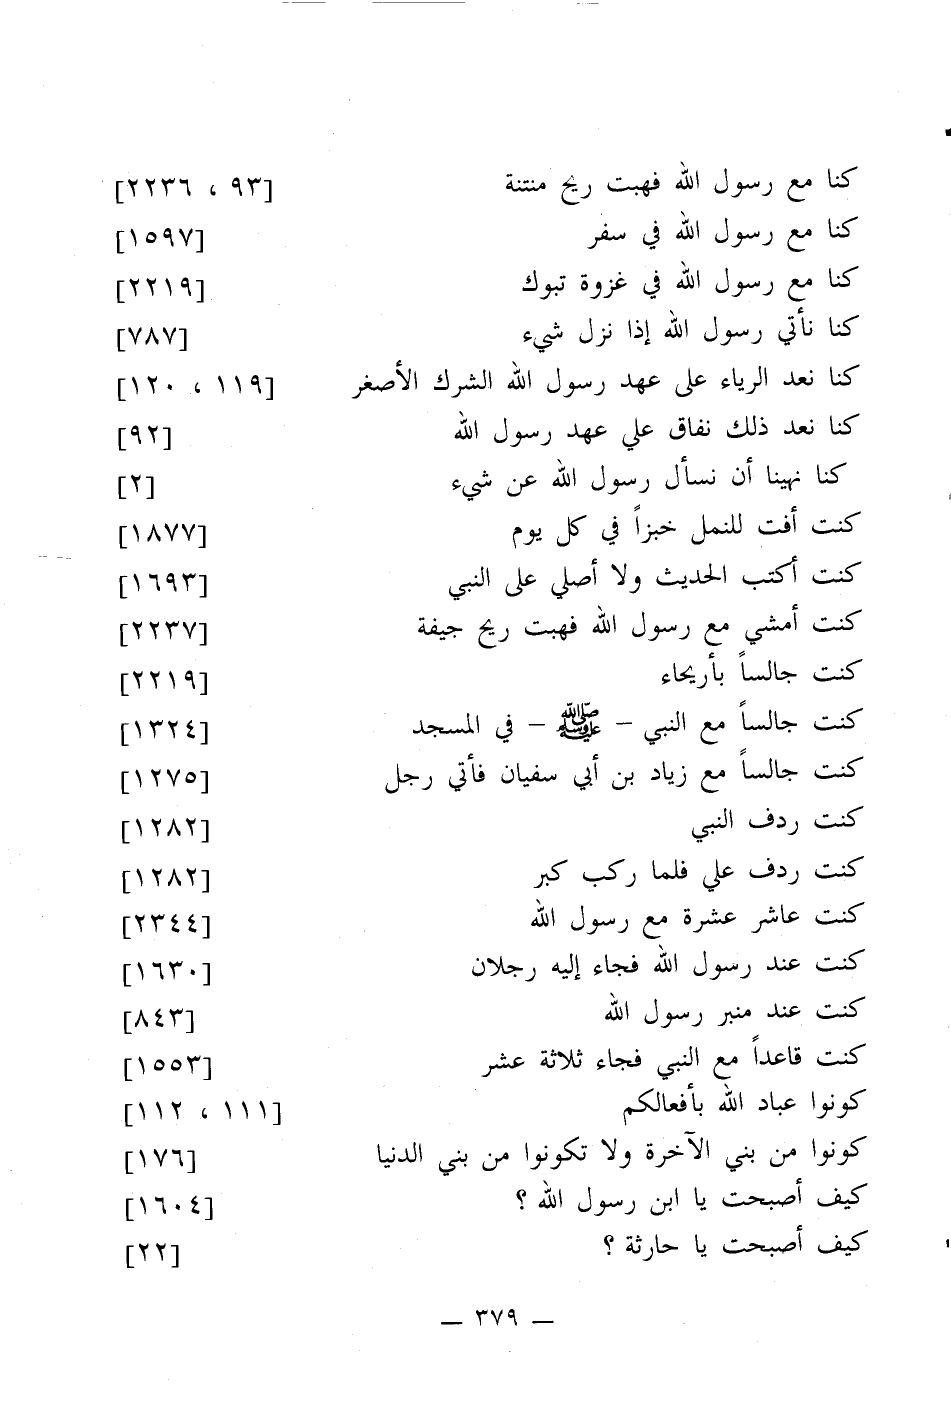 كنا مع رسول الله فهبت ريح منتنة [٩٣ ، ٢٢٣٦]
كنا مع رسول الله في سفر [١٥٩٧]
كنا مع رسول الله في غزوة تبوك [٢٢١٩]
كنا نأتي رسول الله إذا نزل شيء [٧٨٧]
كنا نعد الرياء على عهد رسول الله الشرك الأصغر [١١٩ ، ١٢٠]
كنا نعد ذلك نفاق علي عهد رسول الله [٩٢]
كنا نهينا أن نسأل رسول الله عن شيء [٢]
كنت أفت للنمل خبزاً في كل يوم [١٨٧٧]
كنت أكتب الحديث ولا أصلي على النبي [١٦٩٣]
كنت أمشي مع رسول الله فهبت ريح جيفة [٢٢٣٧]
كنت جالساً بأريحاء [٢٢١٩]
كنت جالساً مع النبي – ﷺ – في المسجد [١٣٢٤]
كنت جالساً مع زياد بن أبي سفيان فأتي رجل [١٢٧٥]
كنت ردف النبي [١٢٨٢]
كنت ردف علي فلما ركب كبر [١٢٨٢]
كنت عاشر عشرة مع رسول الله [٢٣٤٤]
كنت عند رسول الله فجاء إليه رجلان [١٦٣٠]
كنت عند منبر رسول الله [٨٤٣]
كنت قاعداً مع النبي فجاء ثلاثة عشر [١٥٥٣]
كونوا عباد الله بأفعالكم [١١١ ، ١١٢]
كونوا من بني الآخرة ولا تكونوا من بني الدنيا [١٧٦]
كيف أصبحت يا ابن رسول الله ؟ [١٦٠٤]
كيف أصبحت يا حارثة ؟ [٢٢]
— ٣٧٩ —